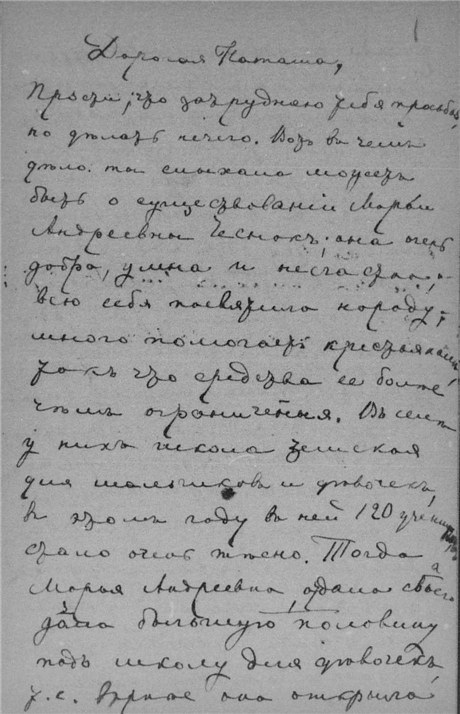 1
Дорогая Наташа,
Прости, что затрудняю тебя просьбой,
но дѣлать нечего. Вотъ въ чемъ
дѣло. ты слыхала можетъ
быть о существованіи Марьи
Андреевны Чеснокъ; она очень
добра, умна и несчастна,
всю себя посвятила народу,
много помогаетъ крестьянамъ
такъ что средства ее болѣе
чѣмъ ограничены. Въ селѣ
у нихъ школа земская
для мальчиковъ и дѣвочекъ,
въ этомъ году въ ней 120 учениковъ
стало очень тѣсно. Тогда
Марья Андреевна отдала своего
дома большую половину
подъ школу для дѣвочекъ,
т. е. вѣрнѣе она открыла